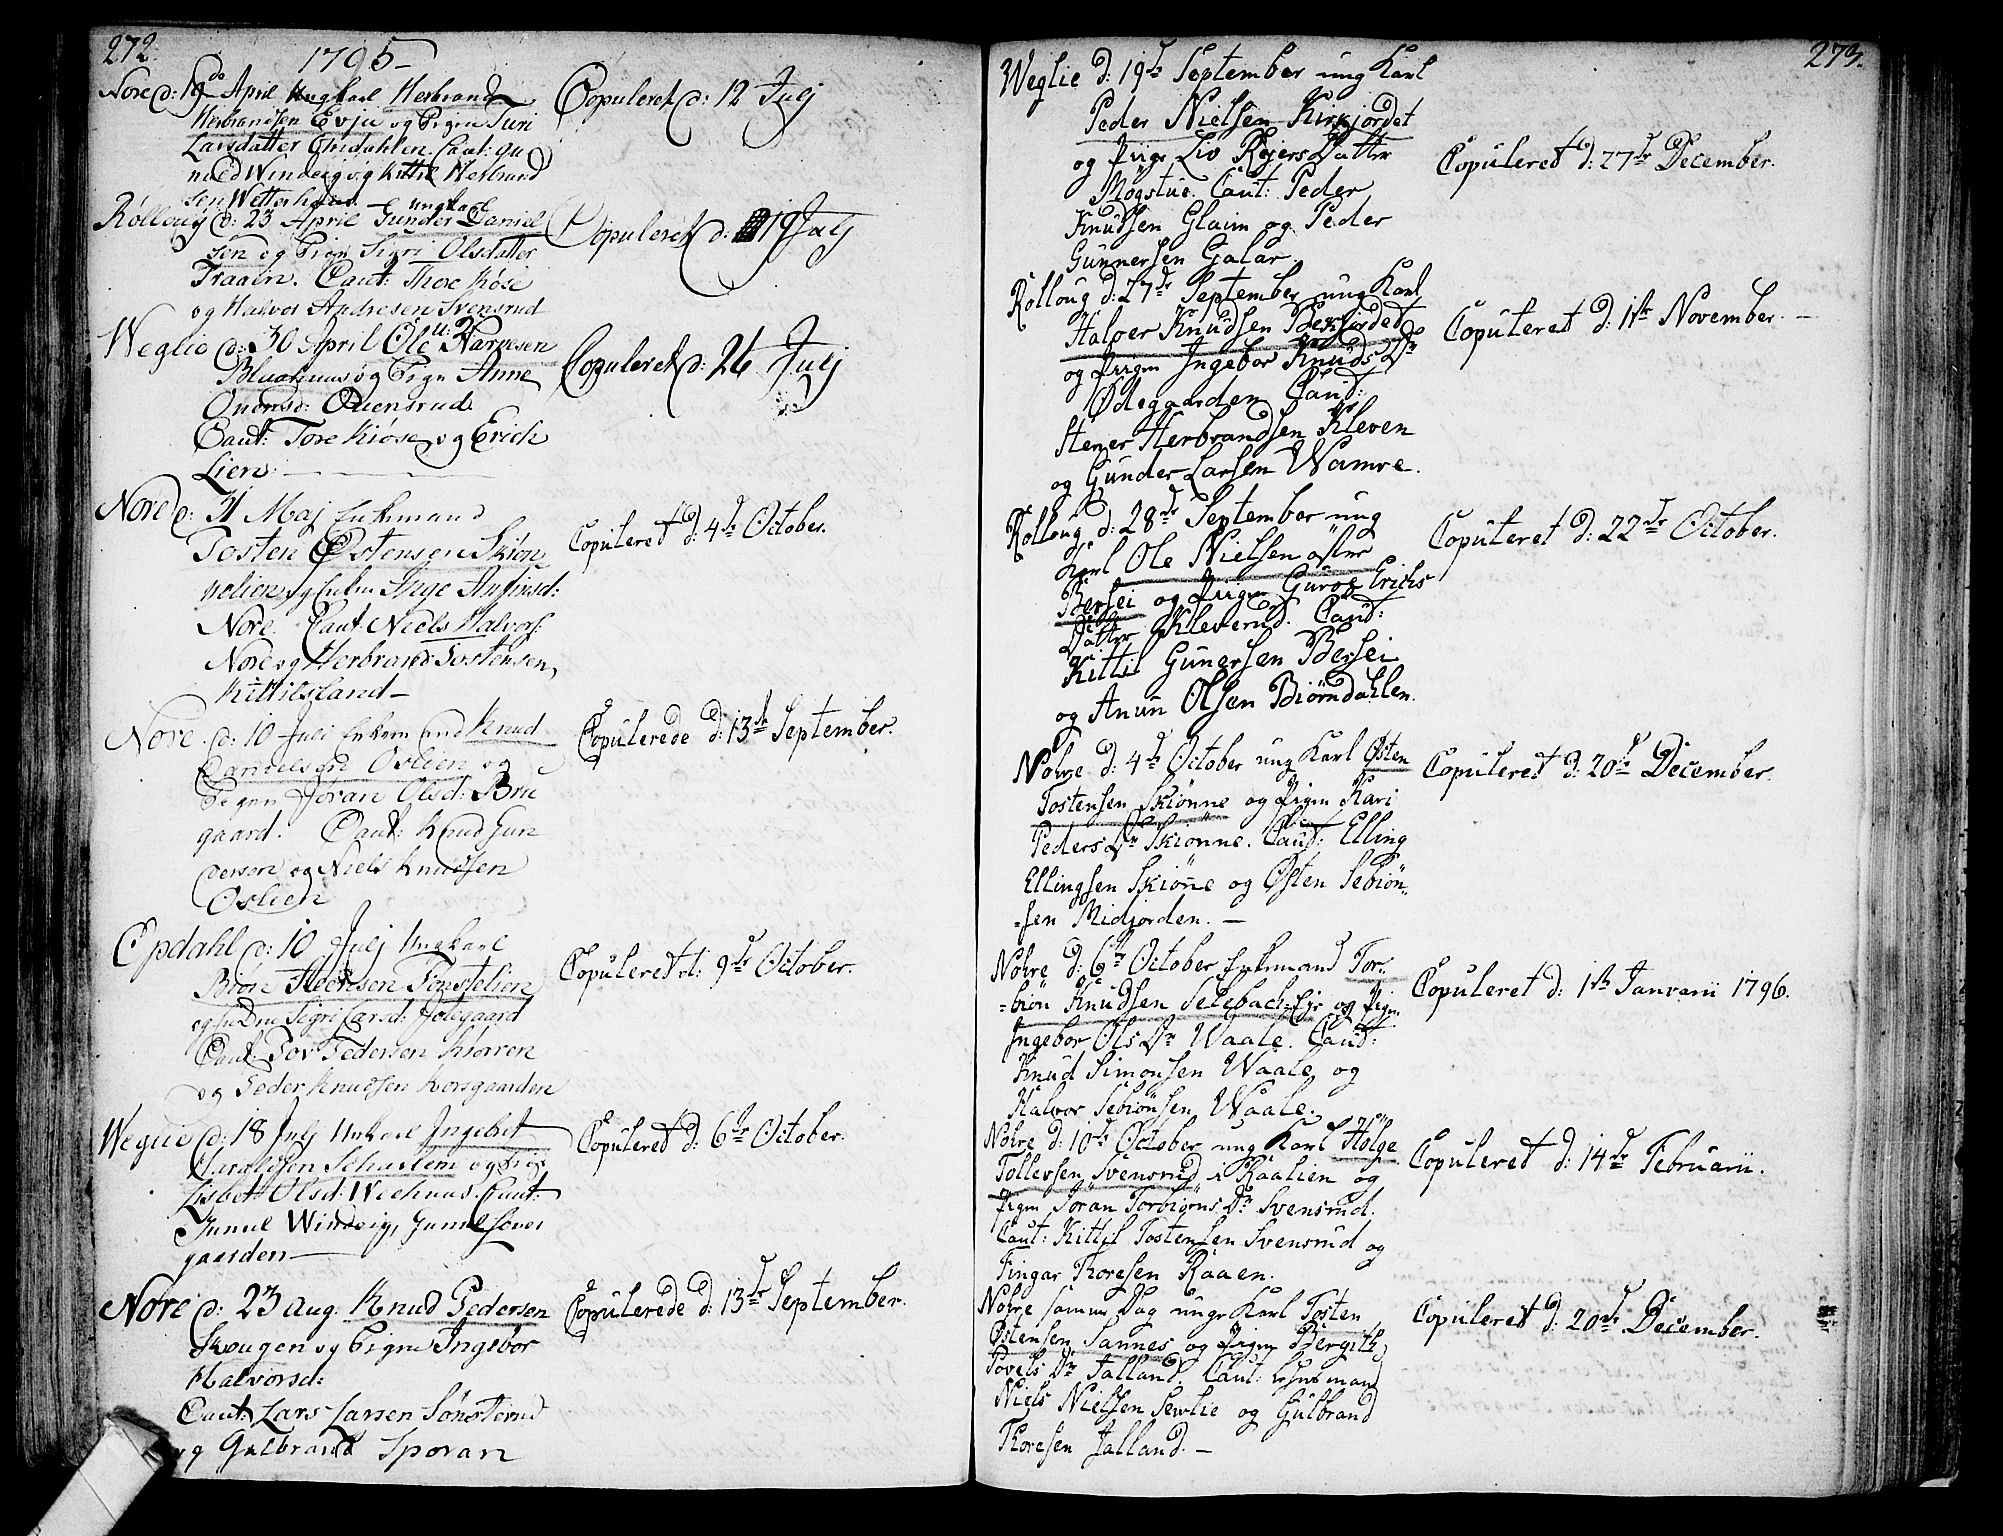 272.
1795-
Nore d: 19de April Ungkarl Herbrand
Herbrandsen Evju og Pigen Turi
Larsdatter Opdahlen. Caut: Gu
nuld Windeig og Kittil Herbrand
sen Wetterhuus
Copuleret d: 12 Julj
Rolloug d: 23 April ungkarl Gunder Daniel
sen og Pign Sigri Olsdatter
Traain. Caut: Thore Kiöse
og Halvor Andresen Svensrud
Copuleret d: 19 Julj
Weglie d: 30 April Ole Narvesen
og Pign Anne
Caut: Tore Kiöse og Erich
Lien:
Copuleret d: 26 Julj
Nore d: 31 Maj Enkemand
Tosten Østensen Skiön
nelien og Enken Inge Anfinsd:
Nore. Caut: Niels Halvors:
Nore og Herbrand Tostensen
Kittilsland-
Copuleret d: 4de October.
Nore. d: 10 Juli Enkemand Knud
Danielsen Oslien og
Pigen Jöran Olsd: Bru
gaard. Caut: Knud Gun
dersen og Niels Knudsen
Oslien
Copulerede d: 13de September.
Opdahl d: 10 Julj Ungkarl
Biön Steensen Tonstelien
og Sigri Larsd:
Caut: Tov Pedersen
og Peder Knudsen Korsgaarden
Copuleret d: 9de October.
Weglie d: 18 Julj Unkarl Ingebret
og Pige
Lisbet Olsd: Caut:
Gunul Windeig, Gunul Sover
gaarden-
Copuleret d: 6te October.
Nore d: 23 Aug: Knud Pedersen
Skougen og Pigen Ingebor
Halvorsd:
Caut: Lars Larsen Sönsterud
og Gulbrand Sporan
Copulerede d: 13de September.
273.
Weglie d: 19de September ung Karl
Peder Nielsen Kirkjordet
og Pige Liv Rejers Datter
Mogstue. Caut: Peder
Knudsen Glaim og Peder
Gunnersen Galar.
Copuleret d: 27de December.
Rolloug d: 27de September ung Karl
Halver Knudsen Bekjordet
og Pigen Ingebor Knuds Dr
Ödegaarden Caut:
Stener Herbrandsen Kleven
og Gunder Larsen Wamre.
Copuleret d: 1te November. -
Rolloug d: 28de September ung
Karl Ole Nielsen öster
Bersei og Pigen Guroe Erichs
Datter Kleverud. Caut:
Kittil Gunersen Bersei
og Anun Olsen Biörndahlen.
Copuleret d: 22de October.
Nohre d: 4de October ung Karl Østen
Tostensen Skiönne og Pigen Kari
Peders Dr Skiönne. Caut: Elling
Ellingsen Skiöne og Østen Sebiön-
-sen Midjorden. -
Copuleret d: 20de December.
Nohre d: 6te October Enkemand Tor-
-biön Knudsen Selebach-Eje og Pigen
Ingebor Ols Dr Waale. Caut:
Knud Simonsen Waale og
Halvor Sebiönsen Waale.
Copuleret d: 1te Januarii 1796.
Nohre d: 10de October ung Karl Holge
Tollevsen Svensrud i Raalien og
Pigen Jöran Torbiörns Dr Svensrud.
Caut: Kittil Tostensen Svensrud og
Fingar Thoresen Raaen.
Copuleret d: 14de Februarii.
Nohre samme Dag unge Karl Tosten
Østensen Sannes og Pigen Bergith
Povels Dr Jalland. Caut: Huusmand
Niels Nielsen Sewlie og Gulbrand
Thoresen Jalland. -
Copuleret d: 20de December.